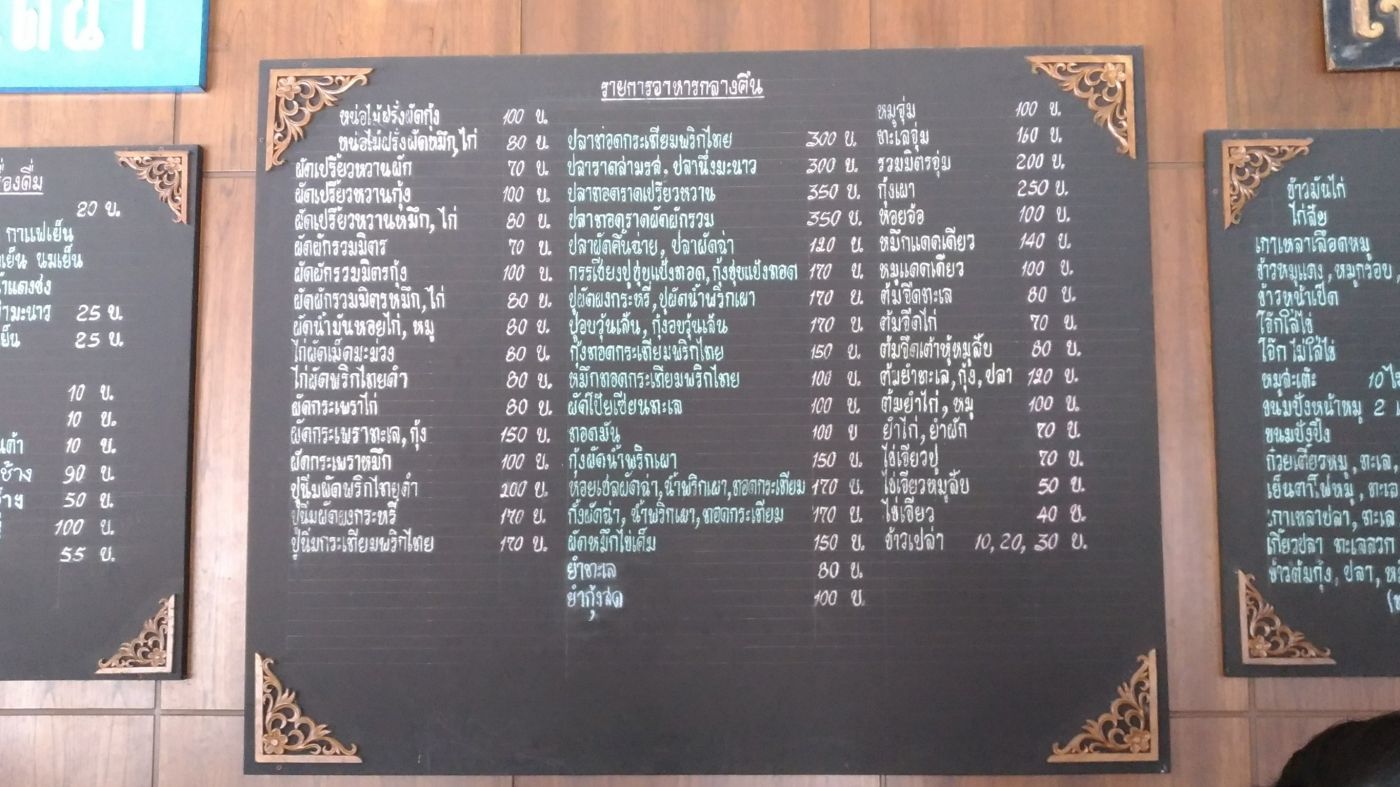 รายการอาหารกลางคืน
หน่อไม้ฝรั่งผัดกุ้ง 100 บ.
หน่อไม้ฝรั่งผัดหมึก, ไก่ 80 บ.
ผัดเปรี้ยวหวานผัก 70 บ.
ผัดเปรี้ยวหวานกุ้ง 100 บ.
ผัดเปรี้ยวหวานหมึก, ไก่ 80 บ.
ผัดผักรวมมิตร 70 บ.
ผัดผักรวมมิตรกุ้ง 100 บ.
ผัดผักรวมมิตรหมึก, ไก่ 80 บ.
ผัดน้ำมันหอยไก่, หมู 80 บ.
ไก่ผัดเม็ดมะม่วง 80 บ.
ไก่ผัดพริกไทยดำ 80 บ.
ผัดกระเพราไก่ 80 บ.
ผัดกระเพราทะเล, กุ้ง 150 บ.
ผัดกระเพราหมึก 100 บ.
ปูนิ่มผัดพริกไทยดำ 200 บ.
ปูนิ่มผัดผงกระหรี่ 170 บ.
ปูนิ่มกระเทียมพริกไทย 170 บ.
ปลาทอดกระเทียมพริกไทย 300 บ.
ปลาราดสามรส. ปลานึ่งมะนาว 300 บ.
ปลาทอดราดเปรี้ยวหวาน 350 บ.
ปลาทอดราดผัดผักรวม 350 บ.
ปลาผัดคื่นฉ่าย, ปลาผัดฉ่า 120 บ.
กรรเชียงปูชุบแป้งทอด, กุ้งชุบแป้งทอด 170 บ.
ปูผัดผงกระหรี่, ปูผัดน้ำพริกเผา 170 บ.
ปูอบวุ้นเส้น, กุ้งอบวุ้นเส้น 170 บ.
กุ้งทอดกระเทียมพริกไทย 150 บ.
หมึกทอดกระเทียมพริกไทย 100 บ.
ผัดโป๊ยเซียนทะเล 100 บ.
ทอดมัน 100 บ
กุ้งผัดน้ำพริกเผา 150 บ.
หอยเชลผัดฉ่า, น้ำพริกเผา, ทอดกระเทียม 170 บ.
กั้งผัดฉ่า, น้ำพริกเผา, ทอดกระเทียม 170 บ.
ผัดหมึกไข่เค็ม 150 บ.
ยำทะเล 80 บ.
ยำกุ้งสด 100 บ.
หมูจุ่ม 100 บ.
ทะเลจุ่ม 160 บ.
รวมมิตรจุ่ม 200 บ.
กุ้งเผา 250 บ.
หอยจ้อ 100 บ.
หมึกแดดเดียว 140 บ.
หมูแดดเดียว 100 บ.
ต้มจืดทะเล 80 บ.
ต้มจืดไก่ 70 บ.
ต้มจืดเต้าหู้หมูสับ 80 บ.
ต้มยำทะเล, กุ้ง, ปลา 120 บ.
ต้มยำไก่, หมู 100 บ.
ยำไก่, ยำผัก 70 บ.
ไข่เจียวปู 70 บ.
ไข่เจียวหมูสับ 50 บ.
ไข่เจียว 40 บ.
ข้าวเปล่า 10, 20, 30 บ.
20 บ.
กาแฟเย็น
นมเย็น
25 บ.
25 บ.
10 บ.
10 บ.
10 บ.
90 บ.
50 บ.
100 บ.
55 บ.
ข้าวมันไก่
ไก่สับ
เกาเหลาเลือดหมู
ข้าวหมูแดง, หมูกรอบ,
ข้าวหน้าเป็ด
โจ๊กใส่ไข่
โจ๊ก ไม่ใส่ไข่
หมูสะเต๊ะ 10 ไม้
ขนมปังหน้าหมู 2
ขนมปังปิ้ง
ก๋วยเตี๋ยวหมู, ทะเล,
เย็นตาโฟหมู, ทะเล
เกาเหลาปลา, ทะเล
เกี๊ยวปลา ทะเลลวก
ข้าวต้มกุ้ง, ปลา,